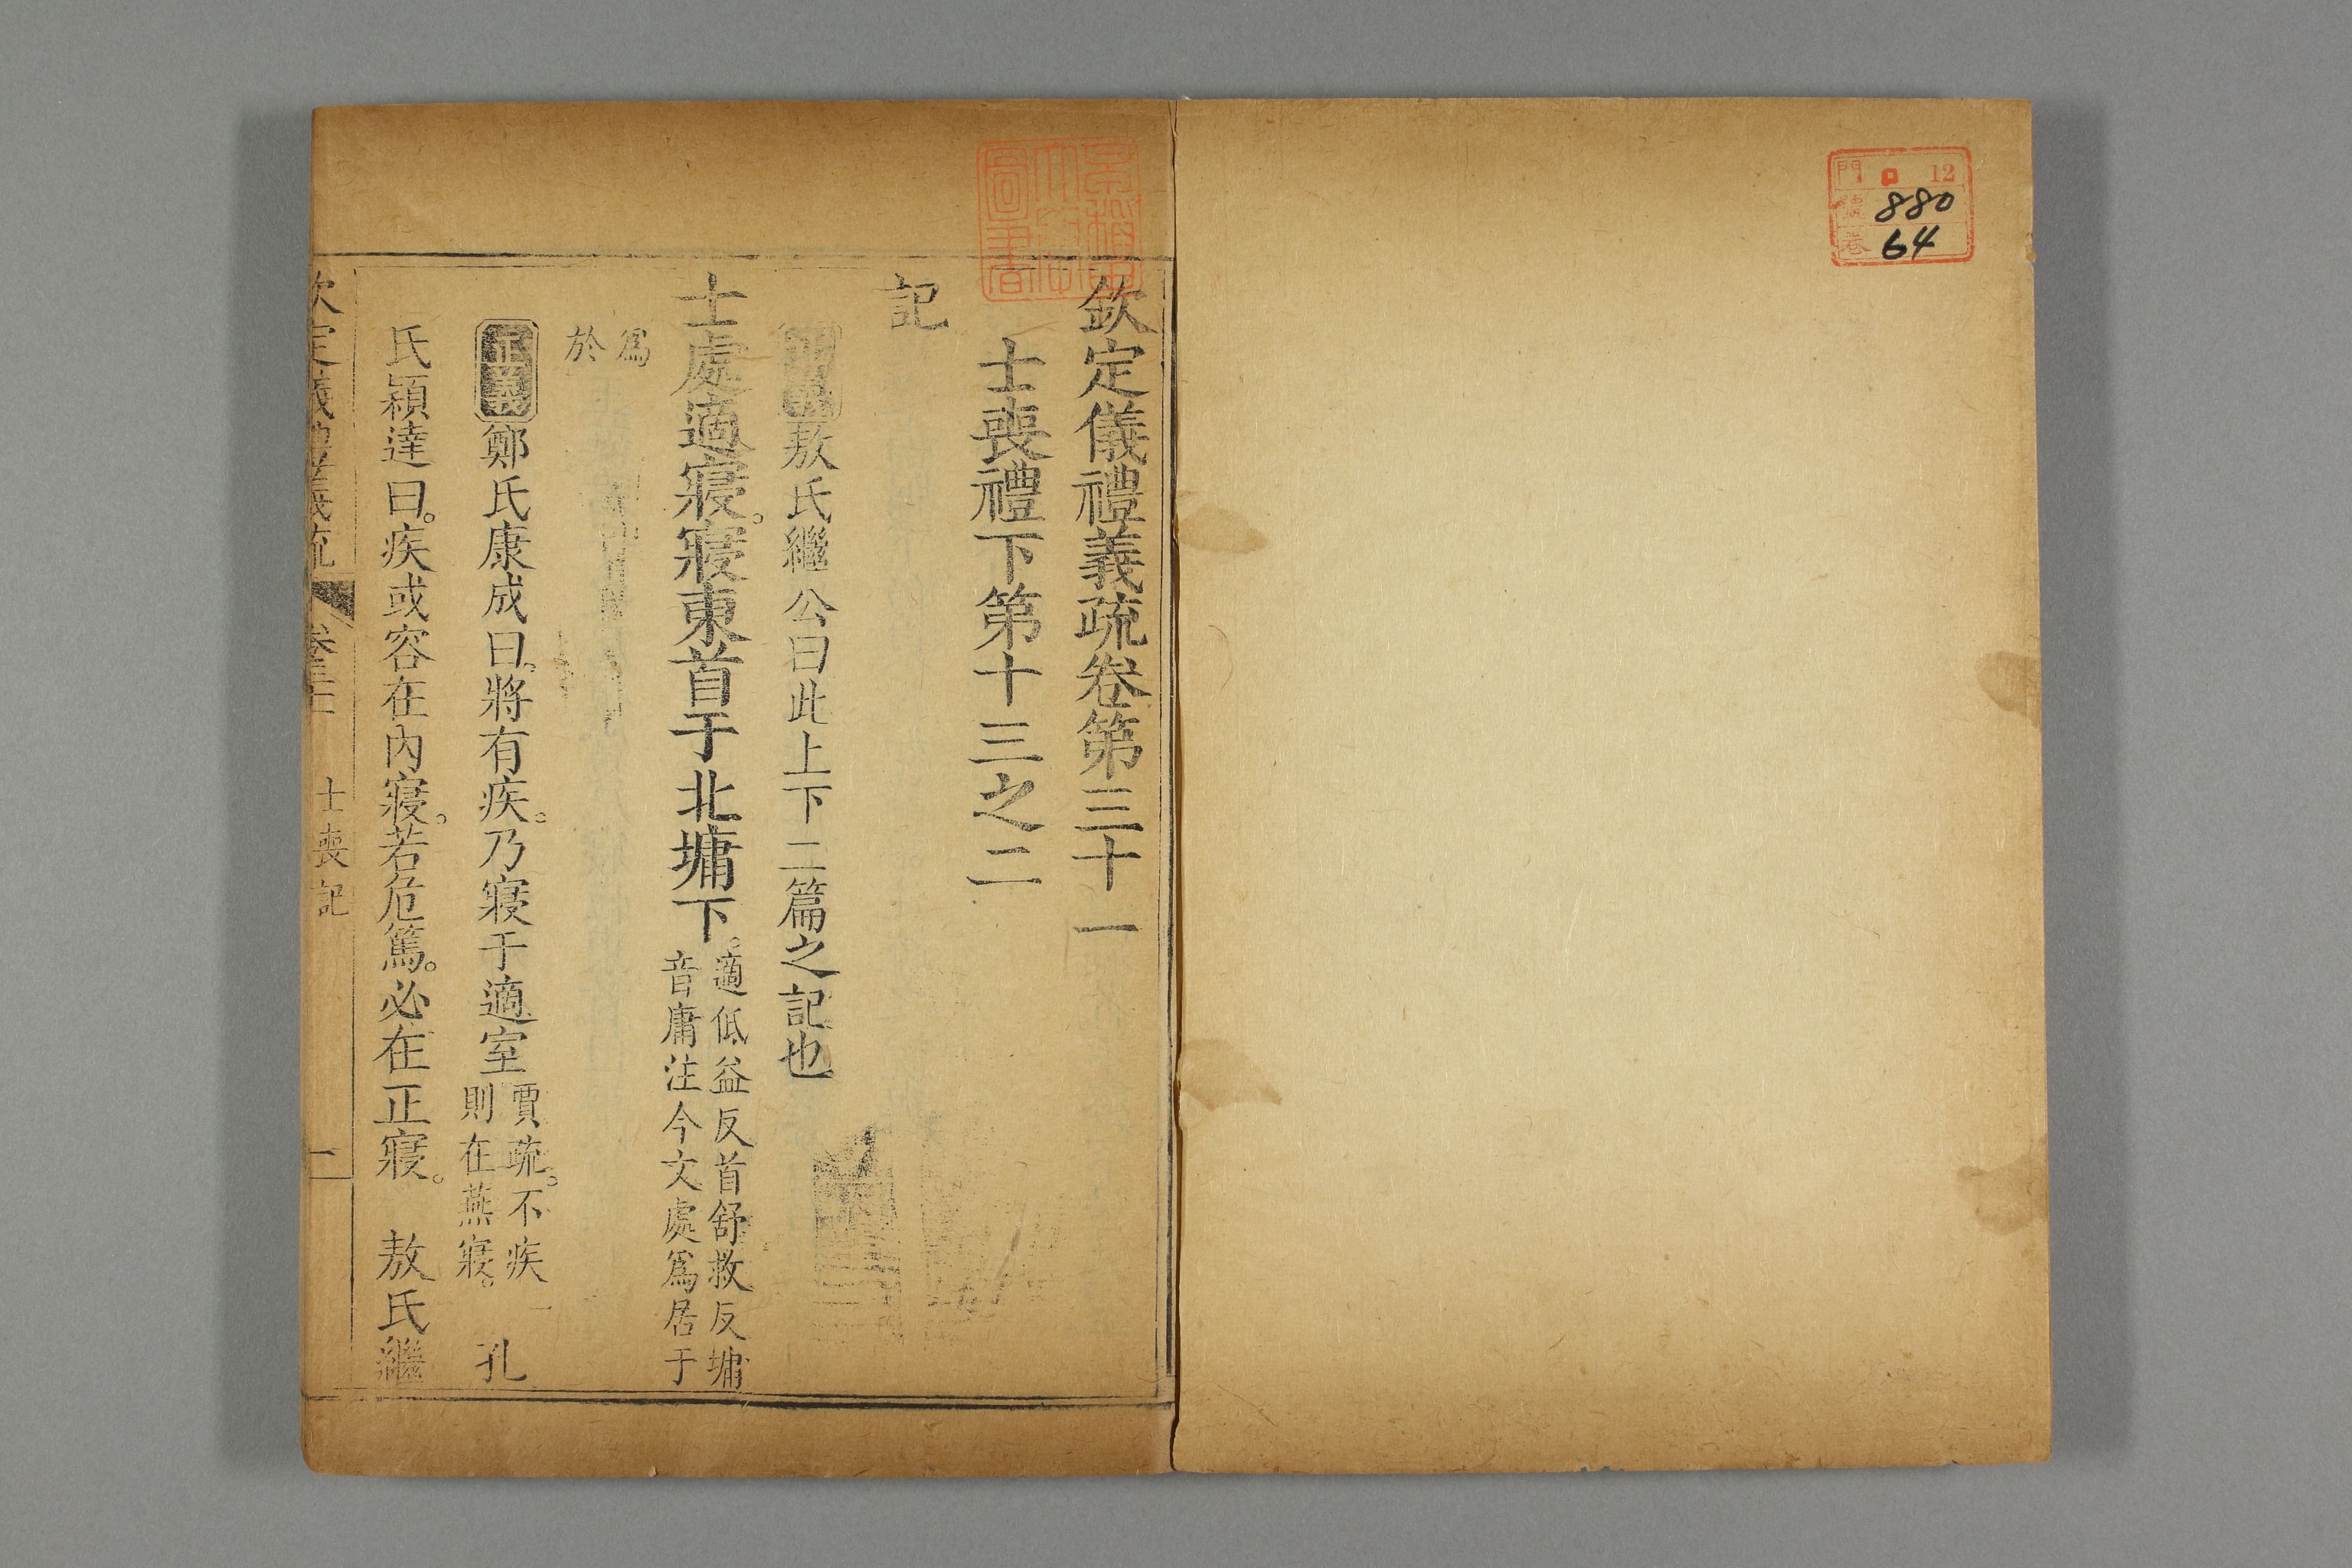 門 ロ 12
號 880
卷 64
欽定儀禮義疏卷第三十一
士喪禮下第十三之二
記
正義敖氏繼公曰此上下二篇之記也
士處適寢。寢東首于北墉下。適低益反首舒救反墉
音庸注今文處爲居于
爲
於
正義鄭氏康成曰。將有疾。乃寢于適室賈疏。不疾
則在燕寢。 孔
氏穎達曰。疾或容在內寢。若危篤。必在正寢。 敖氏繼
欽定儀禮義疏 卷三十一 士喪記 一